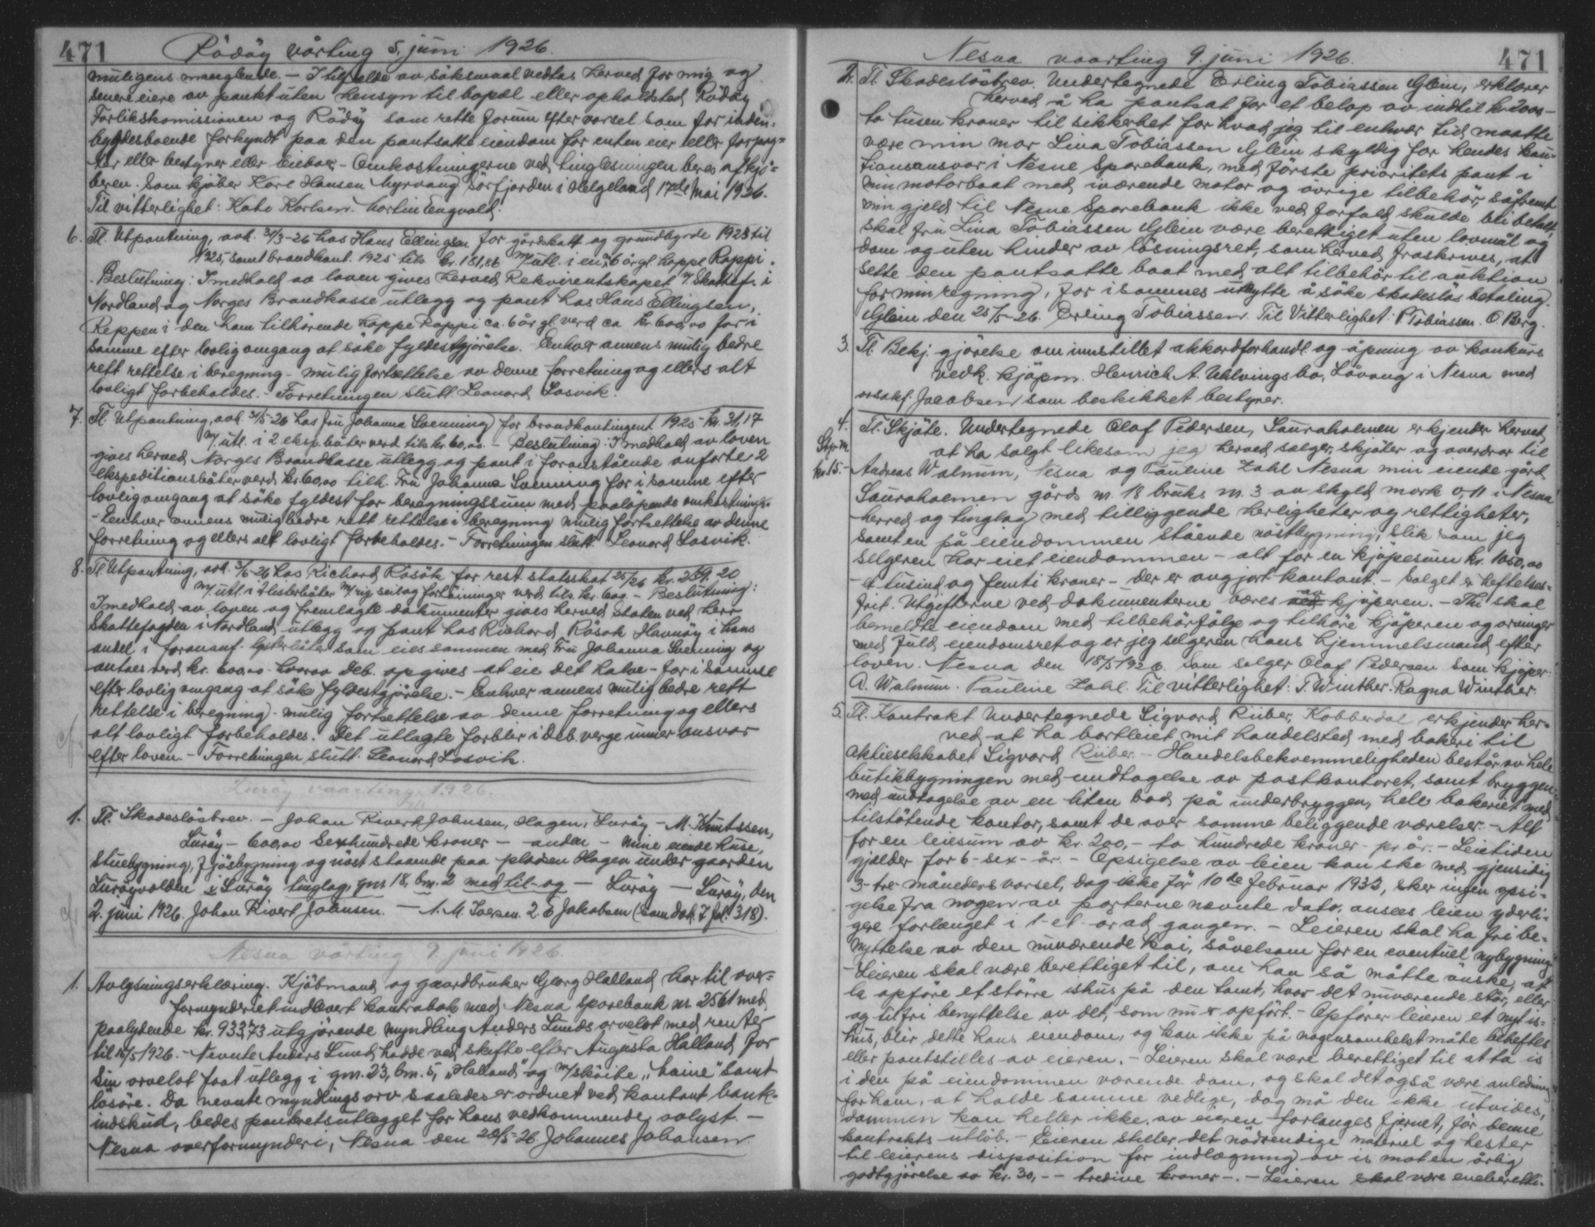 471 Rödöy vårting 5. juni 1926.
muligens manglende. — I tilfælde av söksmaal vedtas herved for mig og
senere eiere av pantet uten hensyn til bopæl eller opholdsted Rödöy
Forlikskommission og Rödöy som rette forum efter varsel som for inden-
bygdesboende forkyndt paa den pantsatte eiendom for enten eier eller forpag-
ter eller bestyrer eller leieboer. — Omkostningerne ved tinglesningen beres af kjö-
beren. Som kjøber Karl Hansen Myrvang Sörfjorden i Helgeland 17de Mai 1926.
Til vitterlighet: Kato Karlsen. Martin Engvold.
6. Tl. Utpantning, avh. 3/3-26 hos Hans Ellingsen for gårdskatt og grundbyrde 1923 til
1925, samt brandkont. 1925 tils. kr. 181,86 m/utl. i en 6 örgl. koppe Reppi.
Beslutning: I medhold av loven gives herved Rekvirentskapet v/ Skattef. i
Nordland og Norges Brandkasse utlegg og pant hos Hans Ellingsen,
Reppen i den ham tilhørende koppe Reppi ca. 6 ör gl. verd ca kr. 600,00 for i
samme efter lovlig omgang at søke fyldestgjörelse. — Enhver annens mulig bedre
rett rettelse i beregning — mulig fortsettelse av denne forretning og ellers alt
lovligt forbeholdes. — Forretningen slutt. Leonard Losvik.
7. Tl. Utpantning, avh. 4/5-26 hos Fru Johanna Sörensen for brandkontingent 1925 — kr. 31,17
m/utl. i 2 eksp. båter verd tils. kr. 60,00 — Beslutning: I medhold av loven
gives herved Norges Brandkasse utlegg og pant i foranstående anførte 2
ekspeditionsbåter verd kr. 60,00 tilh. Fru Johanna for i samme efter
lovlig omgang at søke fyldest for beregningssum med påløpende omkostninger.
— Enhver annens mulig bedre rett rettelse i beregning mulig fortsettelse av denne
forretning og ellers alt lovligt forbeholdes. — Forretningen slutt. Leonard Losvik.
8. Tl. Utpantning, avh. 3/6-26 hos Richard Råsök for rest statsskat 25/26 kr. 259.20
m/utl. i 1 listerbåter m/rig seil og fortöininger verd tils. kr. 600. — Beslutning:
I medhold av loven og fremlagte dokumenter gives herved staten ved herr
skattefogden i Nordland utlegg og pant hos Richard Råsök Havnöy i hans
andel i forananf. listerbåt som eies sammen med Fru Johanna og
antaes verd kr. 600,00 hvorav deb. opgives at eie det halve — for i samme
efter lovlig omgang at söke fyldestgjörelse. — Enhver annens mulig bedre rett
rettelse i beregning — mulig fortsettelse av denne forretning og ellers
alt lovligt forbeholdes. Det utlagte forblir i deb. verge under ansvar
efter loven. — Forretningen slutt. Leonard Losvik.
Luröy vaarting 1926.
1. Tl. Skadeslösbrev. — Johan Rivert Johnsen, Hagen, Luröy — M. Knutssen,
Luröy — 600,00 Sexhundrede kroner — anden — mine eiende huse,
stuebygning, fjösbygning og nöst staaende paa pladsen Hagen under gaarden
Luröyvolden i Luröy tinglag, gnr. 18, bnr. 2 med til- og — Luröy — Luröy, den
2. juni 1926. Johan Rivert Johnsen. — A. M. 2. E. Jakobsen (Som dok. 7 fol. 318).
Nesna vårting 9. juni 1926.
1. Avlysningserklæring. Kjöbmand og gaardbruker Georg Halland har til over-
formynderiet indlevert kontrabok med Nesna sparebank nr. 2561 med
paalydende kr. 933,73 utgjørende myndling Anders Lunds arvelot med renter
til 18/5 1926. — Nevnte Anders Lund hadde ved skifte efter Augusta Halland for
sin arvelot faat utlegg i gnr. 23, bnr. 5, "Halland" og m/sköite "Laine" samt
lösöre. Da nevnte myndlings arv saaledes er ordnet ved kontant bank-
indskud, bedes panteretsutlegget for hans vedkommende avlyst. —
Nesna overformynderi, Nesna den 28/5-26 Johannes Johansen
Nesna vaarting 9. juni 1926. 471
2. Tl. Skadeslösbrev. Undertegnede Erling Tobiassen Glein, erklærer
herved å ha pantsat for et belöp av indtil kr. 2000 —
to tusen kroner til sikkerhet for hvad jeg til enhver tid maatte
være min mor Lina Tobiassen Glein skyldig for hendes kau-
tionsansvar i Nesna Sparebank, med förste prioritets pant i
min motorbaat med iværende motor og övrige tilbehör, såfremt
min gjeld til Nesna Sparebank ikke ved forfald skulde bli betalt
skal fru Lina Tobiassen Glein være berettiget uten lovmål og
dom og uten hinder av lösningsret, som herved fraskrives, at
sette den pantsatte baat med alt tilbehör til auktion
for min regning, for i sammes utbytte å söke skadeslös betaling.
Glein den 25/5-26. Erling Tobiassen. Til Vitterlighet: P. Tobiassen. O. Berg.
3. Tl. Bekj.gjörelse om innstillet akkordforhandl. og åpning av konkurs
vedk. kjöpm. Henrich A. Uhlvings bo, Lövong i Nesna med
o.r.sakf. Jacobsen som beskikket bestyrer.
4. Tl. Skjöte. Undertegnede Olaf Pedersen, Sauraholmen erkjender herved
Stp. m. at ha solgt likesom jeg herved selger, skjöter og overdrar til
kr. 15.- Andreas Walnum, Nesna og Pauline Zahl Nesna min eiende gård
Sauraholmen gårds nr. 18 bruks nr. 3 av skyld mark 0,11 i Nesna
herred og tinglag med tilliggende herligheter og rettigheter,
samt en på eiendommen stående nöstbygning, slik som jeg
selgeren har eiet eiendommen — alt for en kjöpesum kr. 1050,00
— et tusind og femti kroner — der er avgjort kontant. — Salget er heftelses-
frit. Utgifterne ved dokumenterne bæres av kjöperen. — Thi skal
bemeldte eiendom med tilbehör fölge og tilhöre kjöperen og arvinger
med fuld eiendomsret og er jeg selgeren hans hjemmelsmand efter
loven. Nesna den 18/5 1926. Som selger Olaf Pedersen. Som kjöper:
A. Walnum. Pauline Zahl. Til vitterlighet: T. Winther. Ragna Winther.
5. Tl. Kontrakt Undertegnede Sigvard Riiber, Kobberdal erkjender her-
ved at ha bortleiet mit handelsted med bakeri til
Aktieselskabet Sigvard Riiber. — Handelsbekvemmeligheden består av hele
butikbygningen med undtagelse av postkontoret, samt bryggen
med undtagelse av en liten bod på underbryggen, hele bakeriet med
tilstötende kontor, samt de over samme beliggende værelser. — Alt
for en leiesum av kr. 200,— to hundrede kroner — pr. år. — Leietiden
gjelder for 6 — sex — år. — Opsigelse av leien kan ske med gjensidig
3 — tre måneders varsel, dog ikke för 10de februar 1932, sker ingen opsi-
gelse fra nogen av parterne nevnte dato, ansees leien yderli-
gere forlænget i 1 — et — år ad gangen. — Leieren skal ha fri be-
nyttelse av den nuværende kai, såvelsom for en eventuel nybygning
— Leieren skal være berettiget til, om han så måtte önske, at
la opföre et större ishus på den tomt, hvor det nuværende står, eller
og til fri benyttelse av det, som nu er opfört. — Opförer leieren et nyt is-
hus, blir dette hans eiendom, og kan ikke på nogensomhelst måte beheftes
eller pantstilles av eieren. — Leieren skal være berettiget til at ta is
i den på eiendommen værende dam, og skal det også være anledning
for ham, at holde samme vedlige, dog må den ikke utvides,
dammen kan heller ikke av eieren forlanges fjernet, för denne
kontrakts utlöb. — Eieren stiller det nödvendige materiel og hester
til leierens disposition for indlægning av is moten årlig
godtgjörelse av kr. 30,— — tredive kroner —. — Leieren skal være eneberetti-